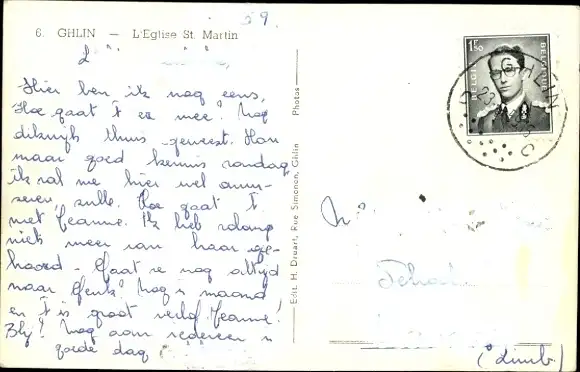 59.
6. GHLIN — L'Eglise St. Martin
L
Hier ben ik nog eens,
Hoe gaat 't er mee? Nog
dikwijls thuis geweest. Han
maar goed kennis vandaag
ik zal me hier wel amu-
seren, zulle. Hoe gaat 't
met Jeanne. Ik heb zolang
niet meer van haar ge-
hoord - Gaat ze nog altijd
naar Genk? Nog 1 maand
en 't is groot verlof Jeanne!
Blij? Nog aan iedereen n
goede dag
Edit. H. Druart, Rue Simonon, Ghlin
Photos
1F50
BELGIE
BELGIQUE
GHLIN
23
(Limb.)